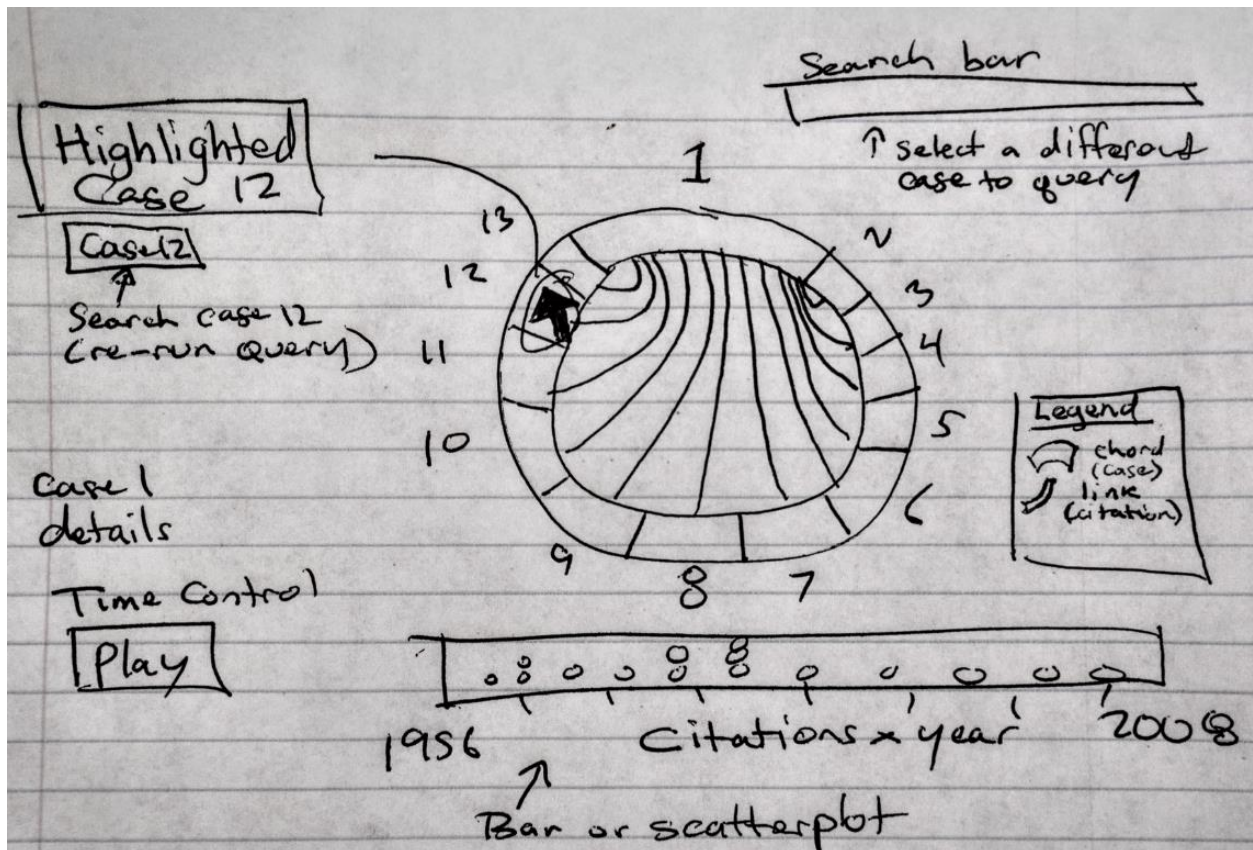 Search bar
↑ select a different
case to query
Highlighted
Case 12
Case 12
Search case 12
(re-run Query)
1
2
3
4
5
6
7
8
9
10
11
12
13
Legend
chord
(case)
link
(citation)
Case 1
details
Time Control
Play
1956
Citations x year
2008
Bar or scatterplot